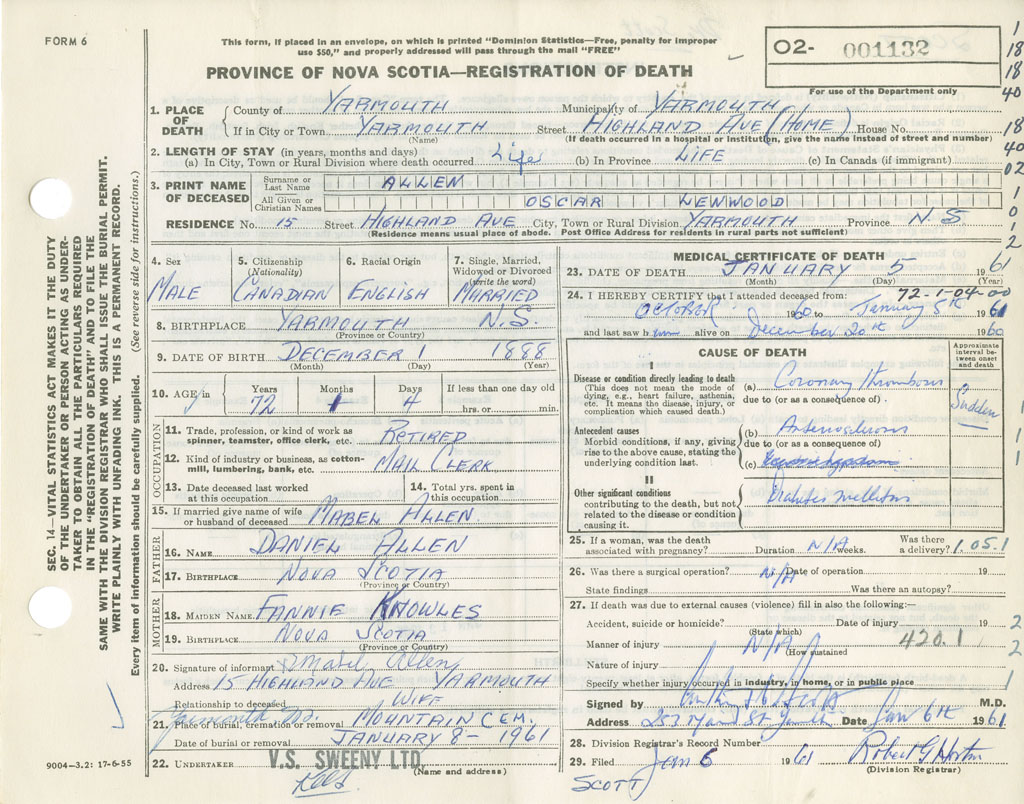 FORM 6
This form, if placed in an envelope, on which is printed "Dominion Statistics—Free, penalty for improper
use $50," and properly addressed will pass through the mail "FREE"
PROVINCE OF NOVA SCOTIA—REGISTRATION OF DEATH
O2- 001132
For use of the Department only
1
18
18
40
18
40
02
1
0
1
2
SEC. 14—VITAL STATISTICS ACT MAKES IT THE DUTY
OF THE UNDERTAKER OR PERSON ACTING AS UNDER-
TAKER TO OBTAIN ALL THE PARTICULARS REQUIRED
IN THE "REGISTRATION OF DEATH" AND TO FILE THE
SAME WITH THE DIVISION REGISTRAR WHO SHALL ISSUE THE BURIAL PERMIT.
WRITE PLAINLY WITH UNFADING INK. THIS IS A PERMANENT RECORD.
Every item of information should be carefully supplied. (See reverse side for instructions.)
1. PLACE OF DEATH
County of YARMOUTH Municipality of YARMOUTH
If in City or Town YARMOUTH Street HIGHLAND AVE (HOME) House No.
(Name) (If death occurred in a hospital or institution, give the name instead of street and number)
2. LENGTH OF STAY (in years, months and days)
(a) In City, Town or Rural Division where death occurred Life (b) In Province LIFE (c) In Canada (if immigrant)
3. PRINT NAME OF DECEASED
Surname or Last Name ALLEN
All Given or Christian Names OSCAR LEWOOD
RESIDENCE No. 15 Street HIGHLAND AVE City, Town or Rural Division YARMOUTH Province N.S
(Residence means usual place of abode. Post Office Address for residents in rural parts not sufficient)
4. Sex 5. Citizenship (Nationality) 6. Racial Origin 7. Single, Married, Widowed or Divorced (write the word)
MALE CANADIAN ENGLISH MARRIED
8. BIRTHPLACE YARMOUTH N.S.
(Province or Country)
9. DATE OF BIRTH DECEMBER 1 1888
(Month) (Day) (Year)
10. AGE in Years Months Days If less than one day old
72 1 4 hrs. or min.
OCCUPATION
11. Trade, profession, or kind of work as
spinner, teamster, office clerk, etc. RETIRED
12. Kind of industry or business, as cotton-
mill, lumbering, bank, etc. MAIL CLERK
13. Date deceased last worked at this occupation
14. Total yrs. spent in this occupation
15. If married give name of wife
or husband of deceased MABEL ALLEN.
FATHER
16. NAME DANIEL ALLEN
17. BIRTHPLACE NOVA SCOTIA
(Province or Country)
MOTHER
18. MAIDEN NAME FANNIE KNOWLES
19. BIRTHPLACE NOVA SCOTIA
(Province or Country)
20. Signature of informant Mabel Allen
Address 15 HIGHLAND AVE YARMOUTH
Relationship to deceased WIFE
21. Place of burial, cremation or removal MOUNTAIN CEM.
Date of burial or removal JANUARY 8 - 1961
22. UNDERTAKER V.S. SWEENY LTD.
(Name and address)
9004—3.2: 17-6-55
MEDICAL CERTIFICATE OF DEATH
23. DATE OF DEATH JANUARY 5 1961
(Month) (Day) (Year)
24. I HEREBY CERTIFY that I attended deceased from: 72-1-04-00
OCTOBER 1960 to January 5th 1961
and last saw him alive on December 20th 1960
CAUSE OF DEATH
Approximate interval between onset and death
I
Disease or condition directly leading to death
(This does not mean the mode of
dying, e.g., heart failure, asthenia,
etc. It means the disease, injury, or
complication which caused death.)
(a) Coronary thrombosis
due to (or as a consequence of).
Sudden
Antecedent causes
Morbid conditions, if any, giving
rise to the above cause, stating the
underlying condition last.
(b) Arteriosclerosis
due to (or as a consequence of)
(c)
II
Other significant conditions
contributing to the death, but not
related to the disease or condition
causing it.
Diabetes mellitus
1
1
1
25. If a woman, was the death
associated with pregnancy? Duration N/A weeks. Was there a delivery? 1.05.1
26. Was there a surgical operation? N/A Date of operation 19
State findings Was there an autopsy?
27. If death was due to external causes (violence) fill in also the following:—
Accident, suicide or homicide? Date of injury 19 2
(State which)
Manner of injury N/A 420.1 2
(How sustained
Nature of injury
Specify whether injury occurred in industry, in home, or in public place 1
Signed by M.D.
Address 257 Main St Yarmouth Date Jan 6th 1961
28. Division Registrar's Record Number
29. Filed Jan 6 1961 Robert G Horton
(Division Registrar)
SCOTT